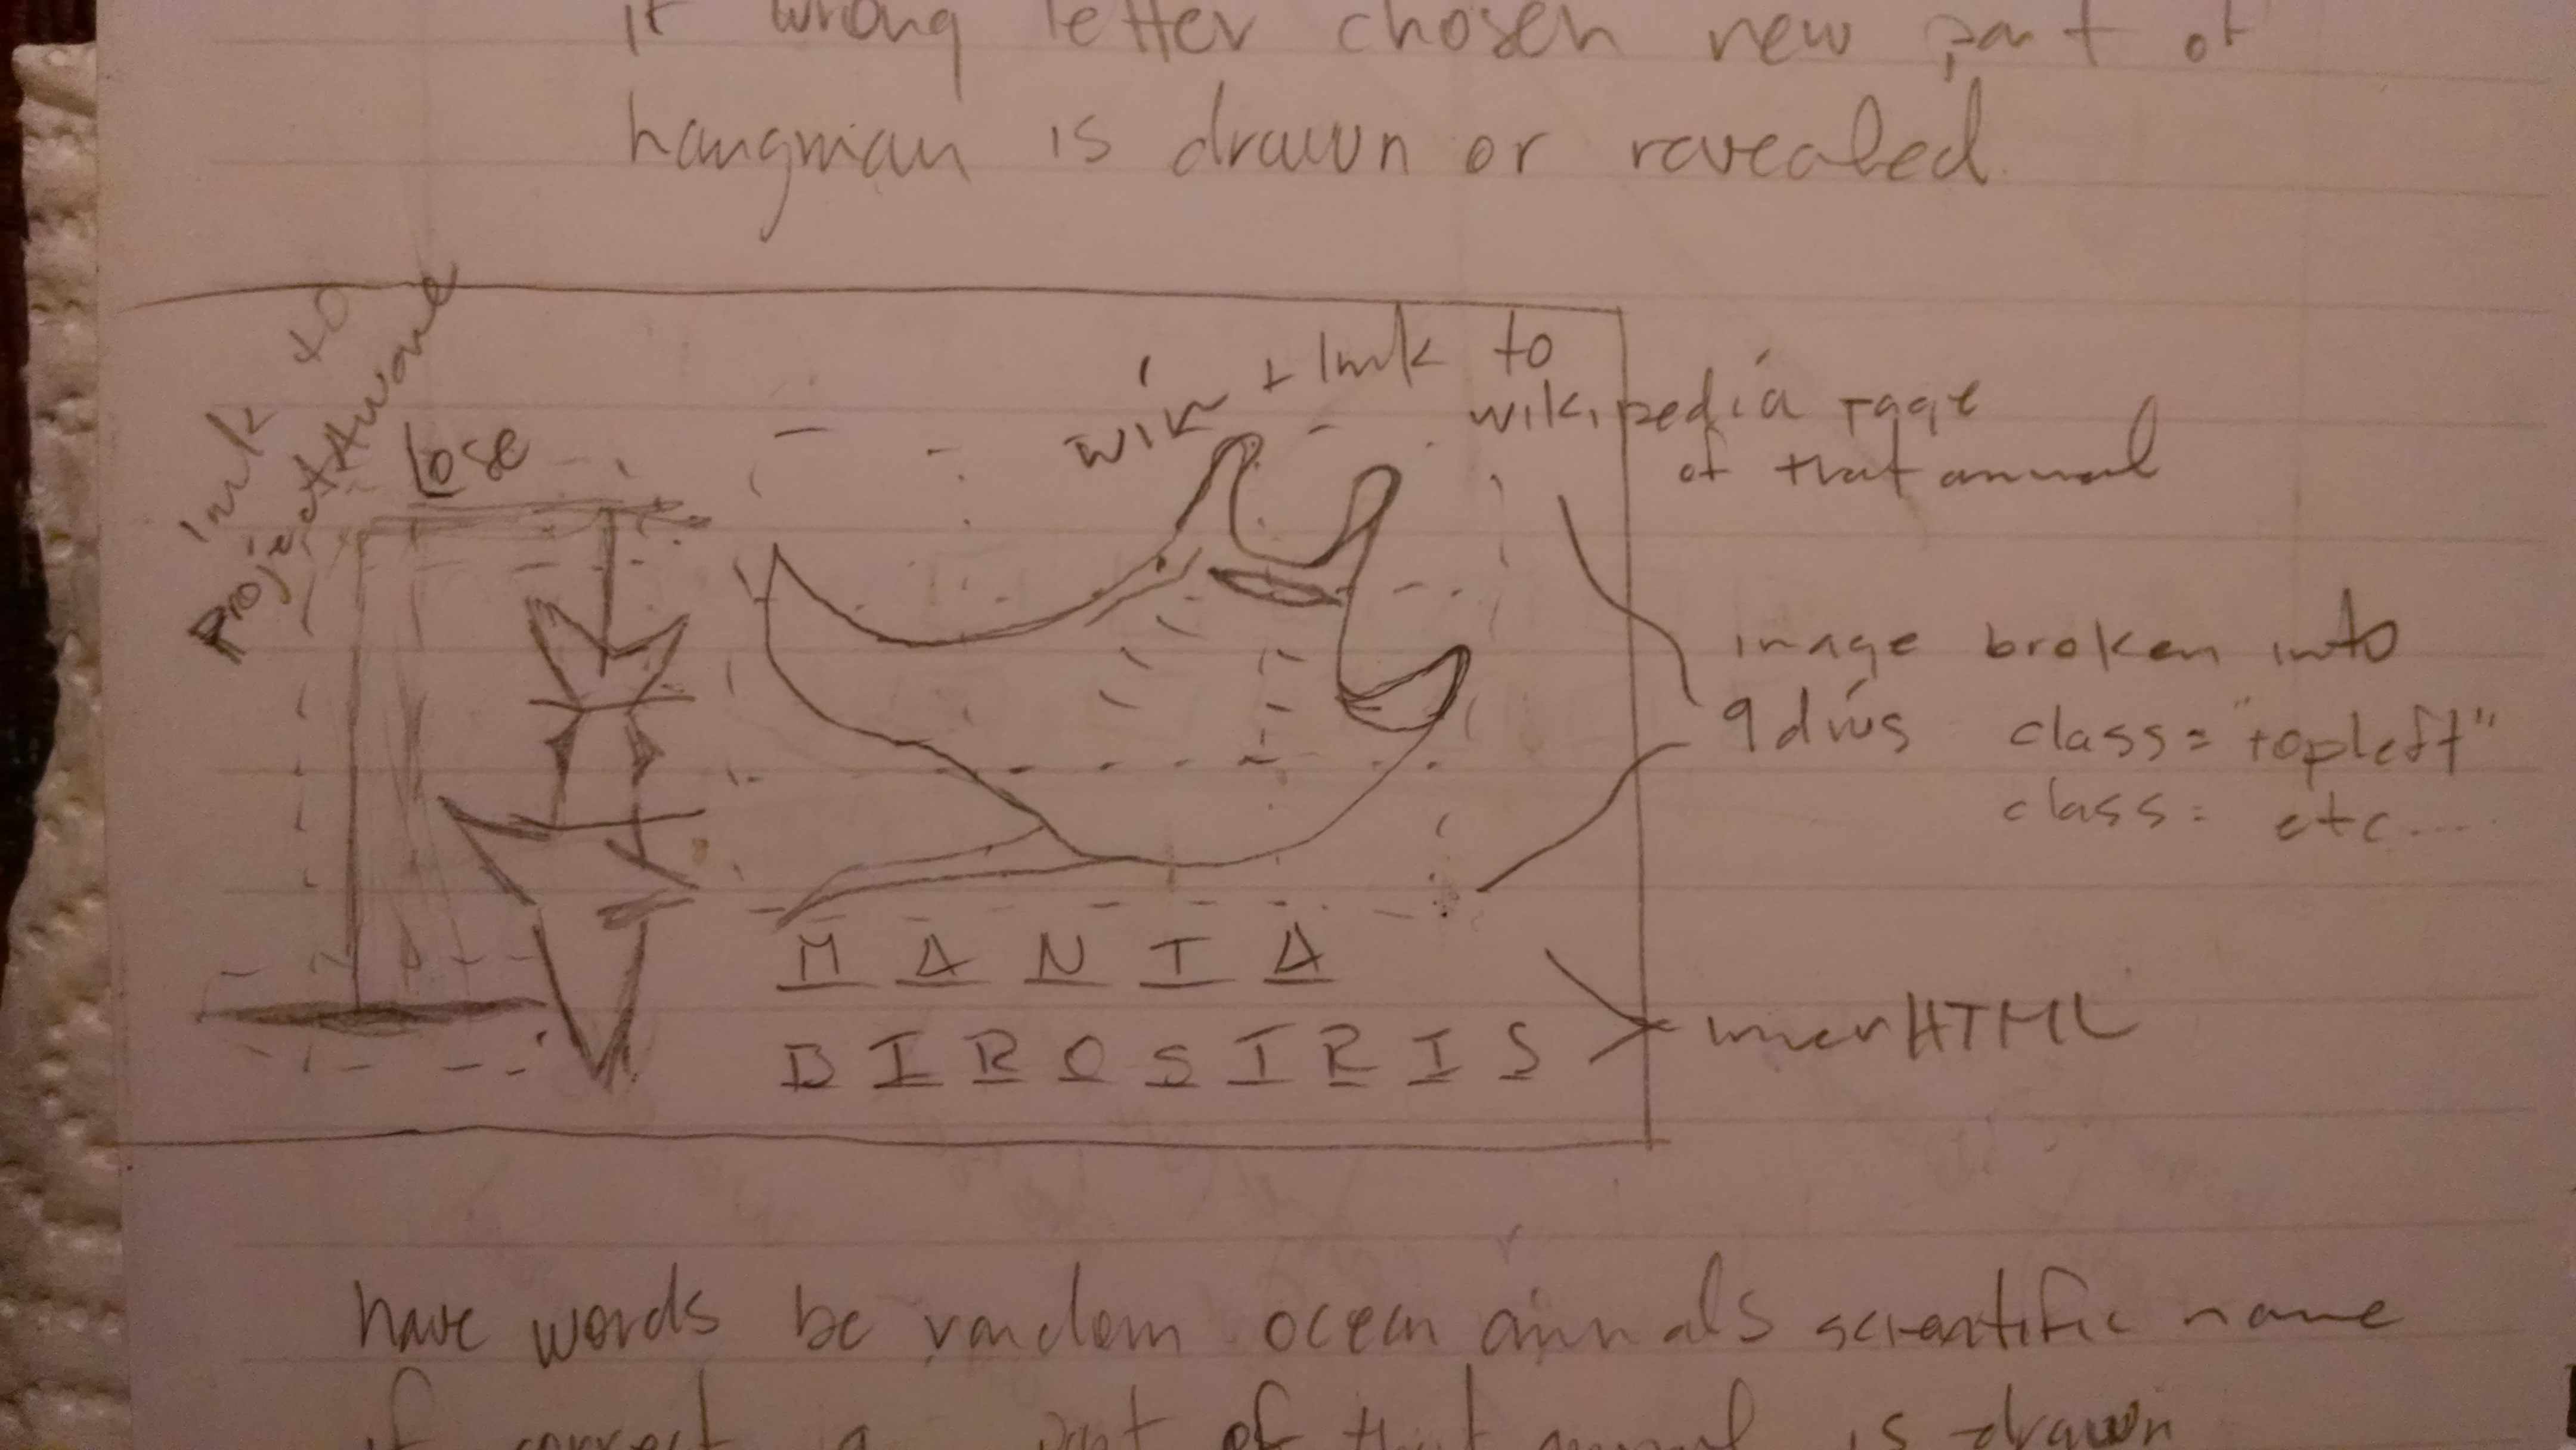 if wrong letter chosen new part of
hangman is drawn or revealed.
link to
Project Aware
Lose
win + link to
wikipedia page
of that animal
image broken into
9 divs class="topleft"
class= etc...
M A N T A
B I R O S T R I S
innerHTML
have words be random ocean animals scientific name
if correct a part of that animal is drawn